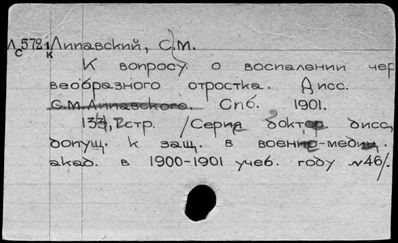 Л572 Липавский, С.М.
С к
К вопросу о воспалении чер
веобразного отростка. Дисс.
С.М.Липавского. Спб. 1901.
134,2стр. /Серия доктор дисс,
допущ. к защ. в военно-медиц.
акад. в 1900-1901 учеб. году №46/.